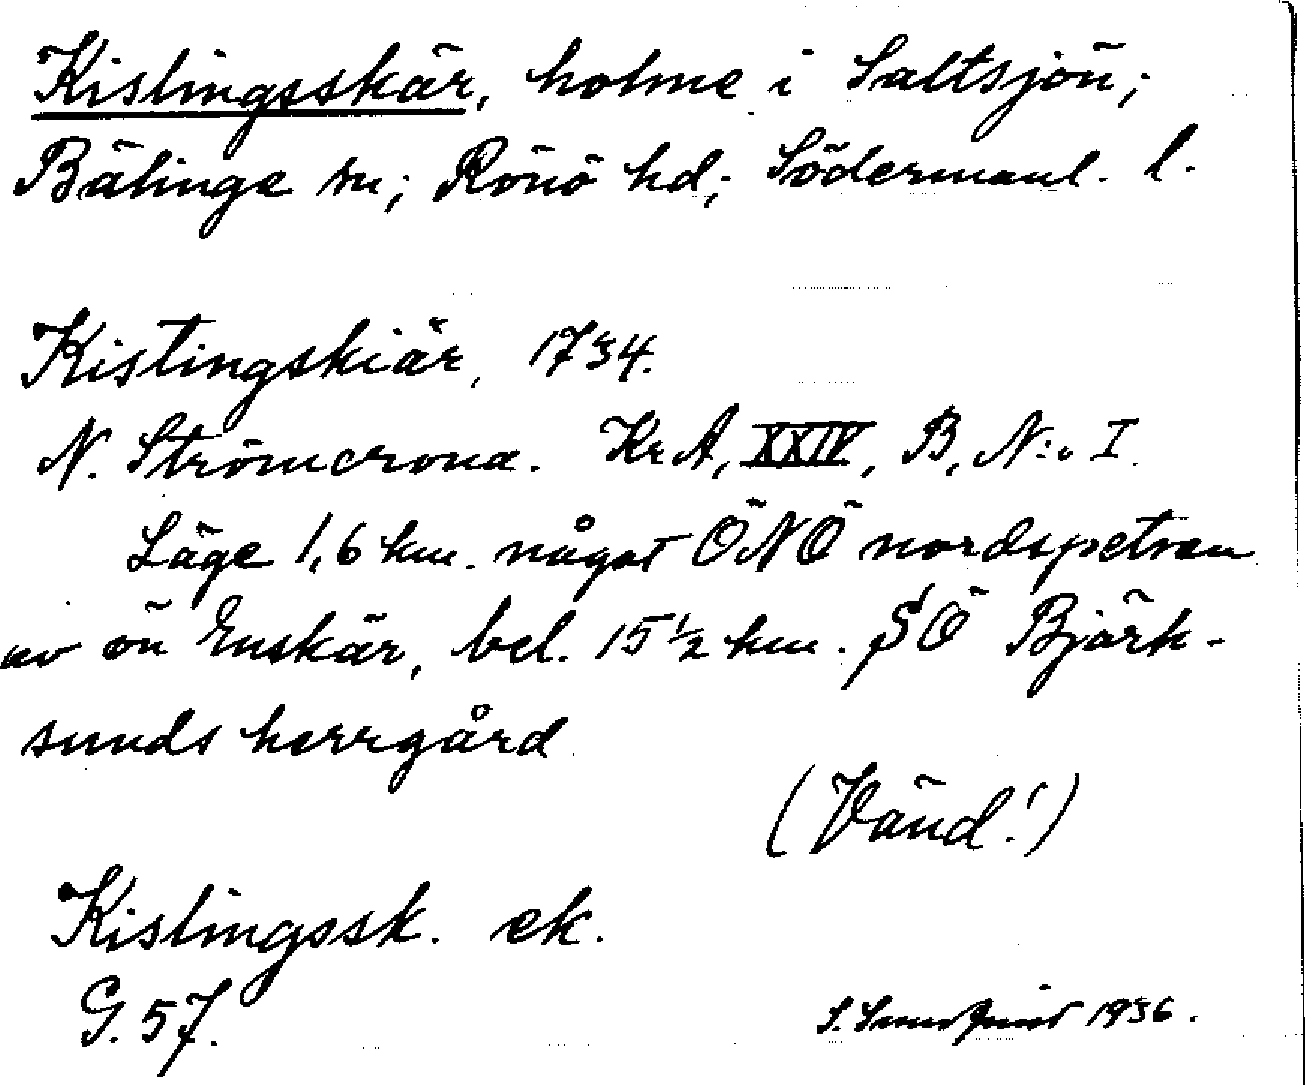 Kislingsskär, holme i Saltsjön;
Bälinge sn; Rönö hd; Södermanl. l.
Kistingskiär, 1734.
N. Strömcrona. Kr A, XXIV, B, N:o I.
Läge 1,6 km. något ÖNÖ nordspetsen
av ön Enskär, bel. 15 1/2 km. SÖ Björk-
sunds herrgård
(Vänd!)
Kislingssk. ek.
G. 57.
S. Sundquist 1936.